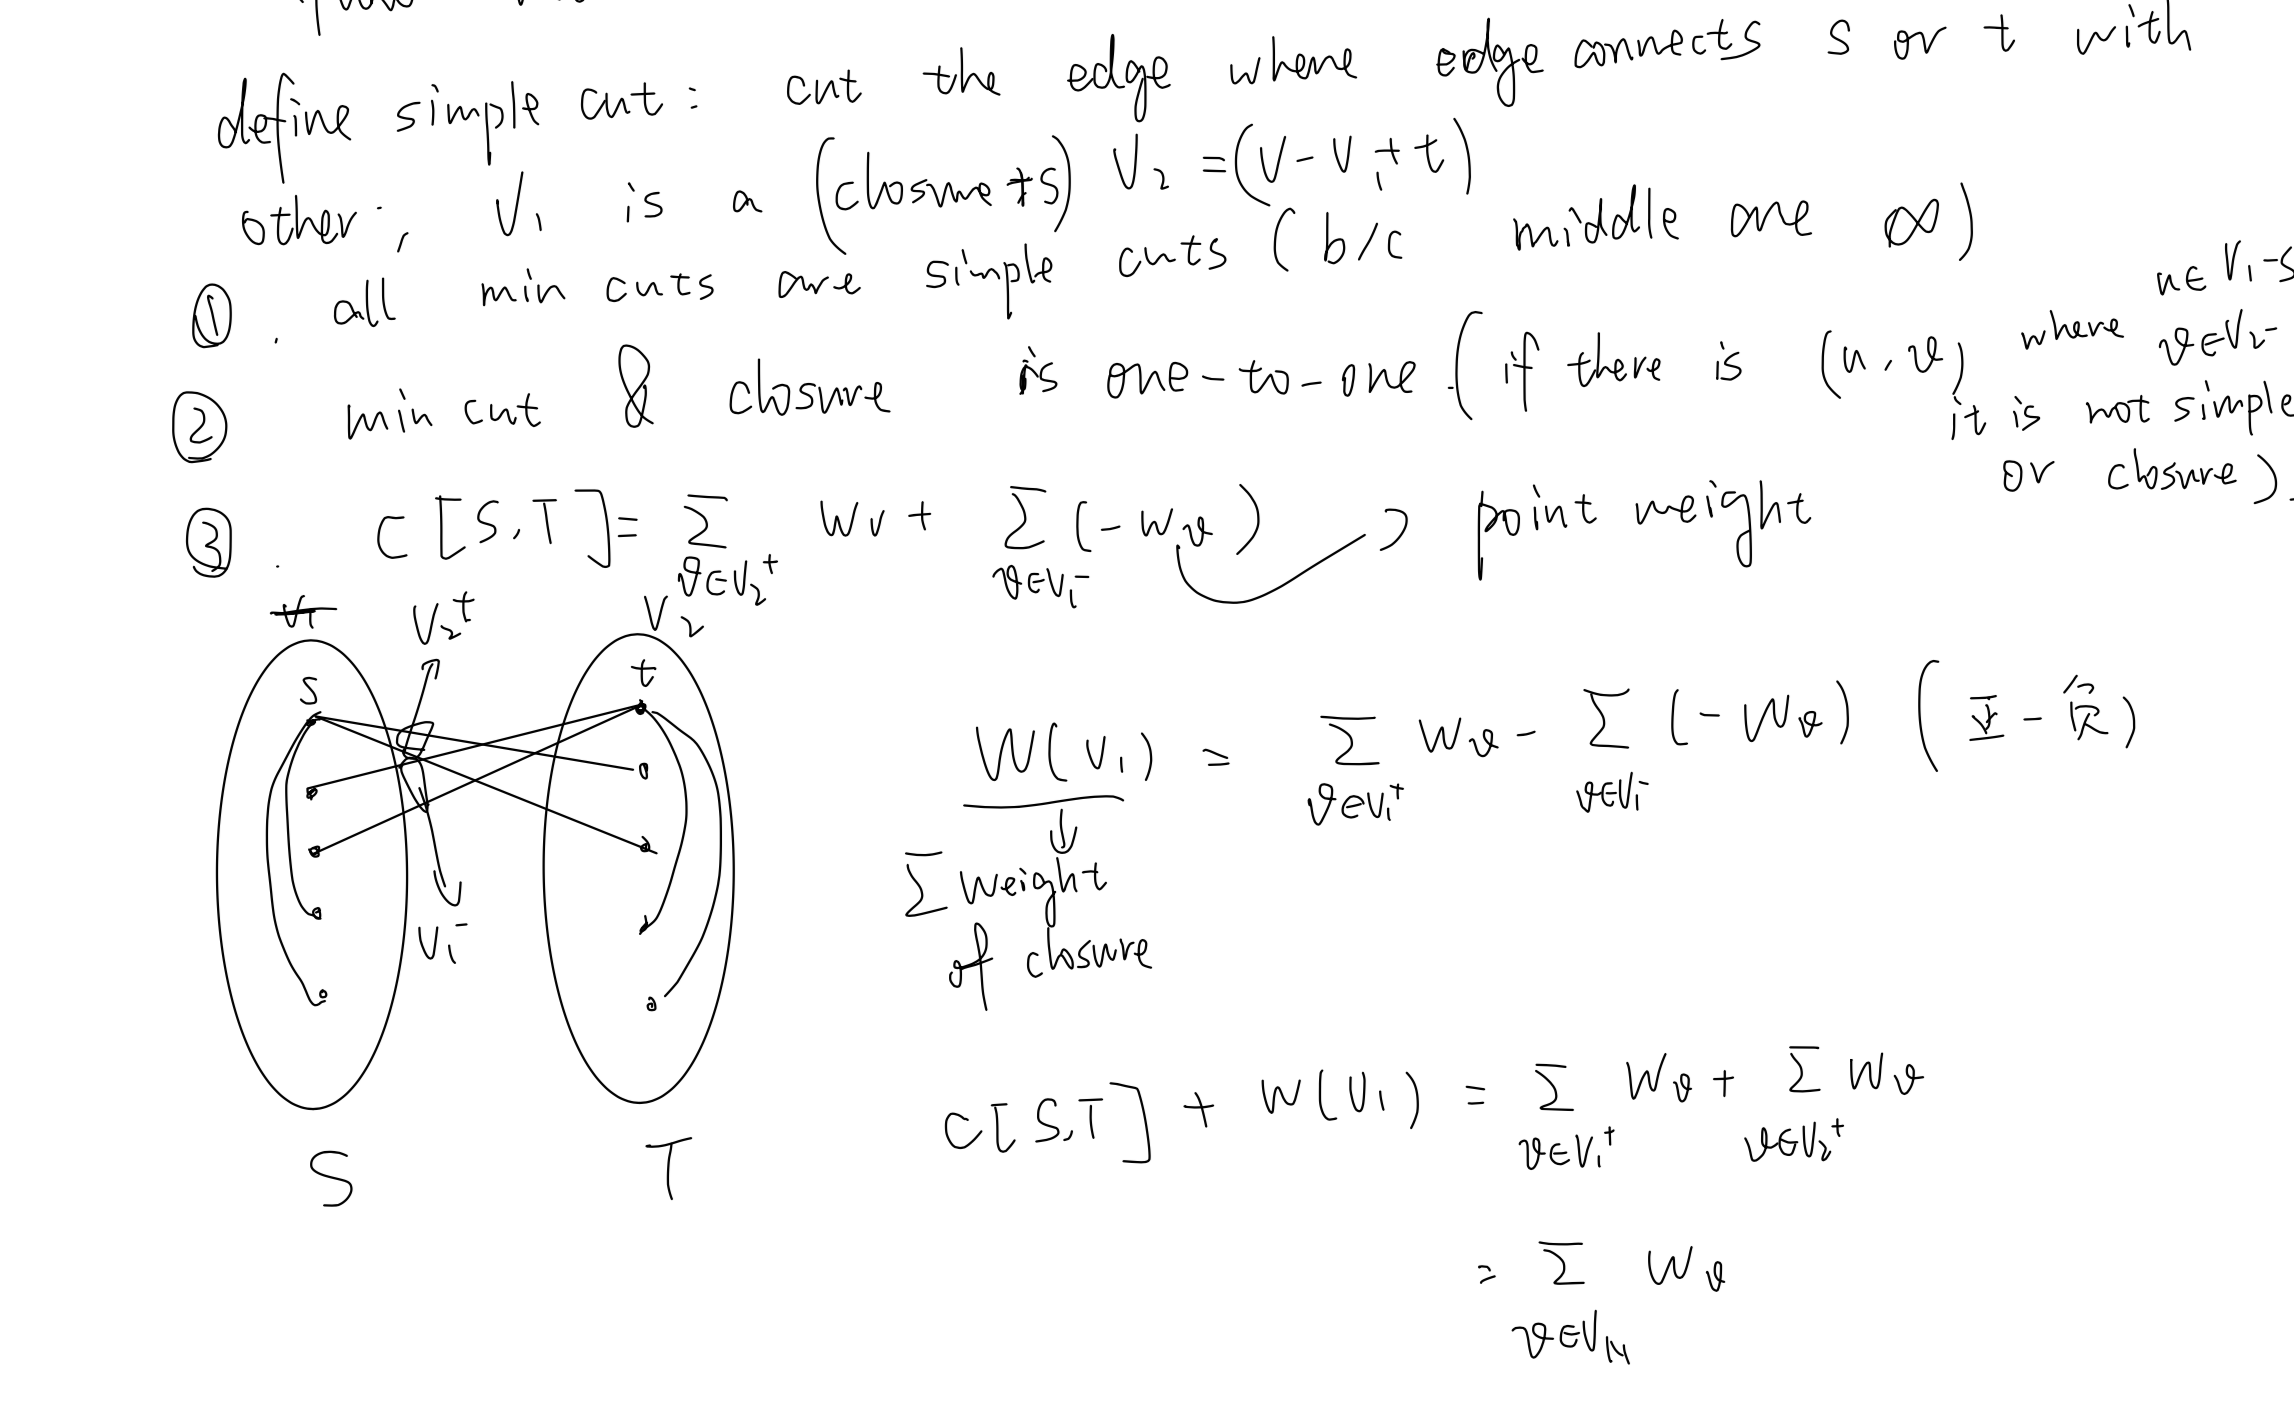 define simple cut: cut the edge where edge connects s or t with
other; V₁ is a (closure+S) V₂ =(V-V₁+t)
①. all min cuts are simple cuts (b/c middle one ∞)
② min cut & closure is one-to-one. (if there is (u,v) where u∈V₁-S
v∈V₂-
it is not simple
or closure).
③. C[S,T]= Σ Wv + Σ(-Wv) → point weight
v∈V₂⁺ v∈V₁⁻
V₁ V₂⁺ V₂
s t
W(V₁) = Σ Wv - Σ(-Wv) (正-负)
v∈V₁⁺ v∈V₁⁻
Σ weight
of closure
V₁⁻
C[S,T] + W(V₁) = Σ Wv + Σ Wv
v∈V₁⁺ v∈V₂⁺
S T
= Σ Wv